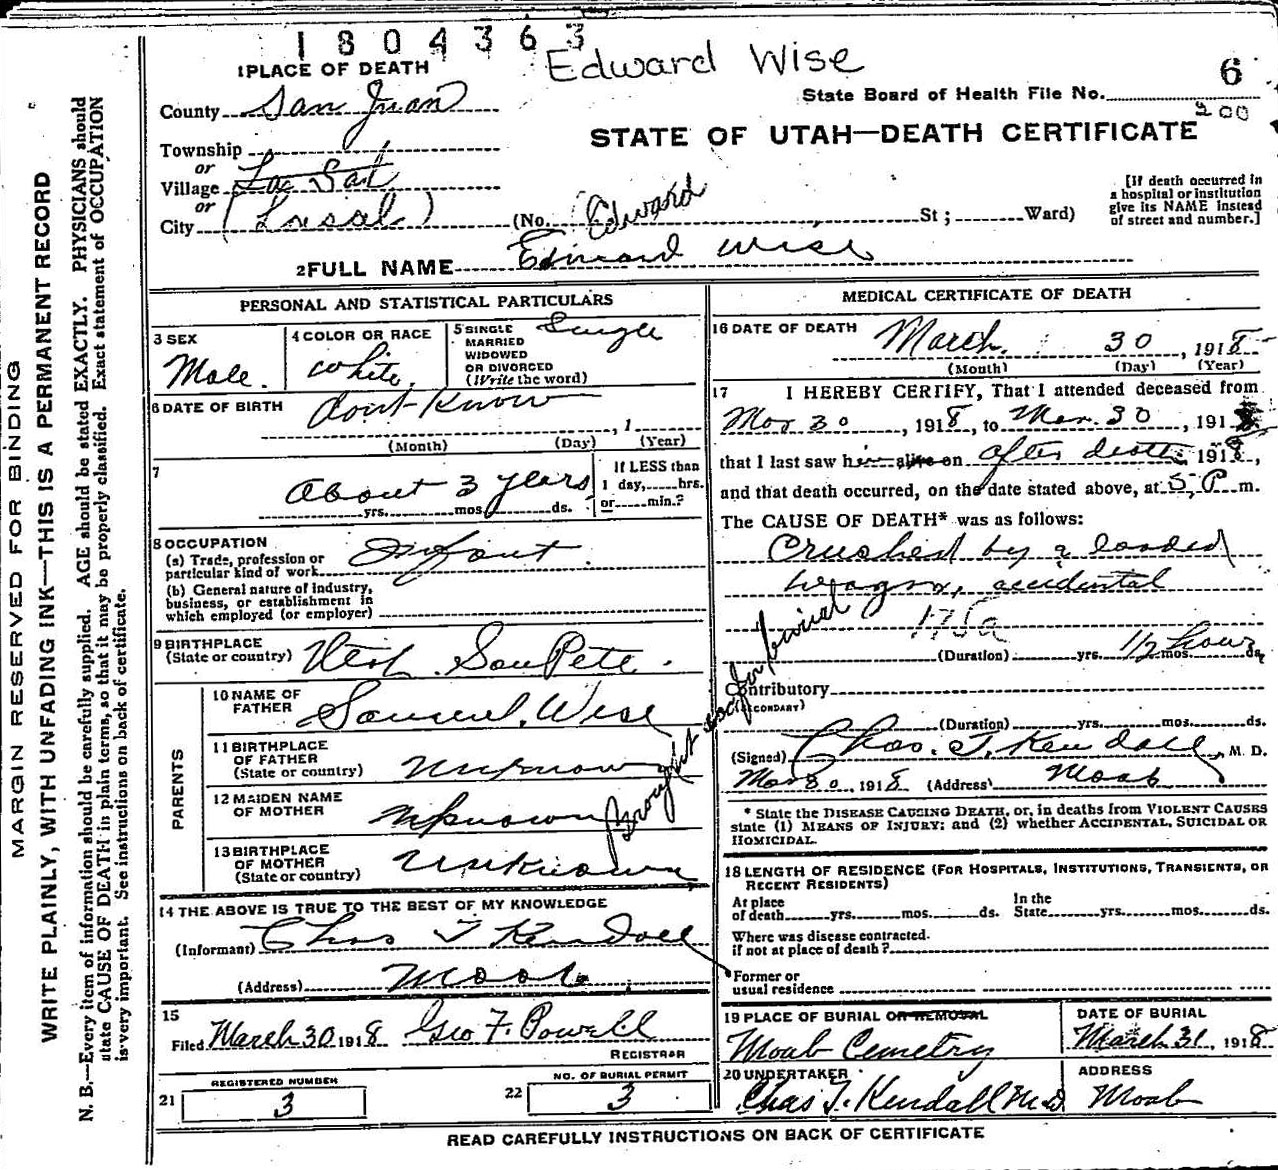 1804363
Edward Wise
6
1 PLACE OF DEATH
State Board of Health File No.
200
County San Juan
STATE OF UTAH—DEATH CERTIFICATE
Township
or
Village La Sal
or
City (Lasal)
(No. (Edward St; Ward)
[If death occurred in
a hospital or institution
give its NAME instead
of street and number.]
2 FULL NAME Edward Wise
PERSONAL AND STATISTICAL PARTICULARS
3 SEX
Male.
4 COLOR OR RACE
White,
5 SINGLE
MARRIED
WIDOWED
OR DIVORCED
(Write the word)
Single
6 DATE OF BIRTH dont Know
, 1
(Month) (Day) (Year)
7
About 3 years
yrs. mos. ds.
If LESS than
1 day, hrs.
or min.?
8 OCCUPATION
(a) Trade, profession or
particular kind of work Infant.
(b) General nature of industry,
business, or establishment in
which employed (or employer)
9 BIRTHPLACE
(State or country) Utah SanPete.
PARENTS
10 NAME OF
FATHER Samuel Wise
11 BIRTHPLACE
OF FATHER
(State or country) Unknown
12 MAIDEN NAME
OF MOTHER Unknown
13 BIRTHPLACE
OF MOTHER
(State or country) Unknown
14 THE ABOVE IS TRUE TO THE BEST OF MY KNOWLEDGE
(Informant) Chas T Kendall
(Address) Moab
15
Filed March 30 1918 Geo F. Powell
REGISTRAR
REGISTERED NUMBER
21 3
NO. OF BURIAL PERMIT
22 3
MEDICAL CERTIFICATE OF DEATH
16 DATE OF DEATH March. 30, 1918
(Month) (Day) (Year)
17 I HEREBY CERTIFY, That I attended deceased from
Mar 30, 1918, to Mar. 30, 1918
that I last saw him alive on after death 1918,
and that death occurred, on the date stated above, at 5 P m.
The CAUSE OF DEATH* was as follows:
Crushed by a loaded
wagon, accidental
175a
(Duration) yrs. 1/2 hour mos. ds.
Brought here for burial
Contributory
(SECONDARY)
(Duration) yrs. mos. ds.
(Signed) Chas. T. Kendall, M. D.
Mar 30, 1918 (Address) Moab
* State the DISEASE CAUSING DEATH, or, in deaths from VIOLENT CAUSES
state (1) MEANS OF INJURY; and (2) whether ACCIDENTAL, SUICIDAL OR
HOMICIDAL.
18 LENGTH OF RESIDENCE (FOR HOSPITALS, INSTITUTIONS, TRANSIENTS, OR
RECENT RESIDENTS)
At place
of death yrs. mos. ds.
In the
State yrs. mos. ds.
Where was disease contracted.
if not at place of death?
Former or
usual residence
19 PLACE OF BURIAL OR REMOVAL
Moab Cemetry
DATE OF BURIAL
March 31, 1918
20 UNDERTAKER
Chas T. Kendall M.D
ADDRESS
Moab
READ CAREFULLY INSTRUCTIONS ON BACK OF CERTIFICATE
MARGIN RESERVED FOR BINDING
WRITE PLAINLY, WITH UNFADING INK—THIS IS A PERMANENT RECORD
N. B.—Every item of information should be carefully supplied. AGE should be stated EXACTLY. PHYSICIANS should
state CAUSE OF DEATH in plain terms, so that it may be properly classified. Exact statement of OCCUPATION
is very important. See instructions on back of certificate.